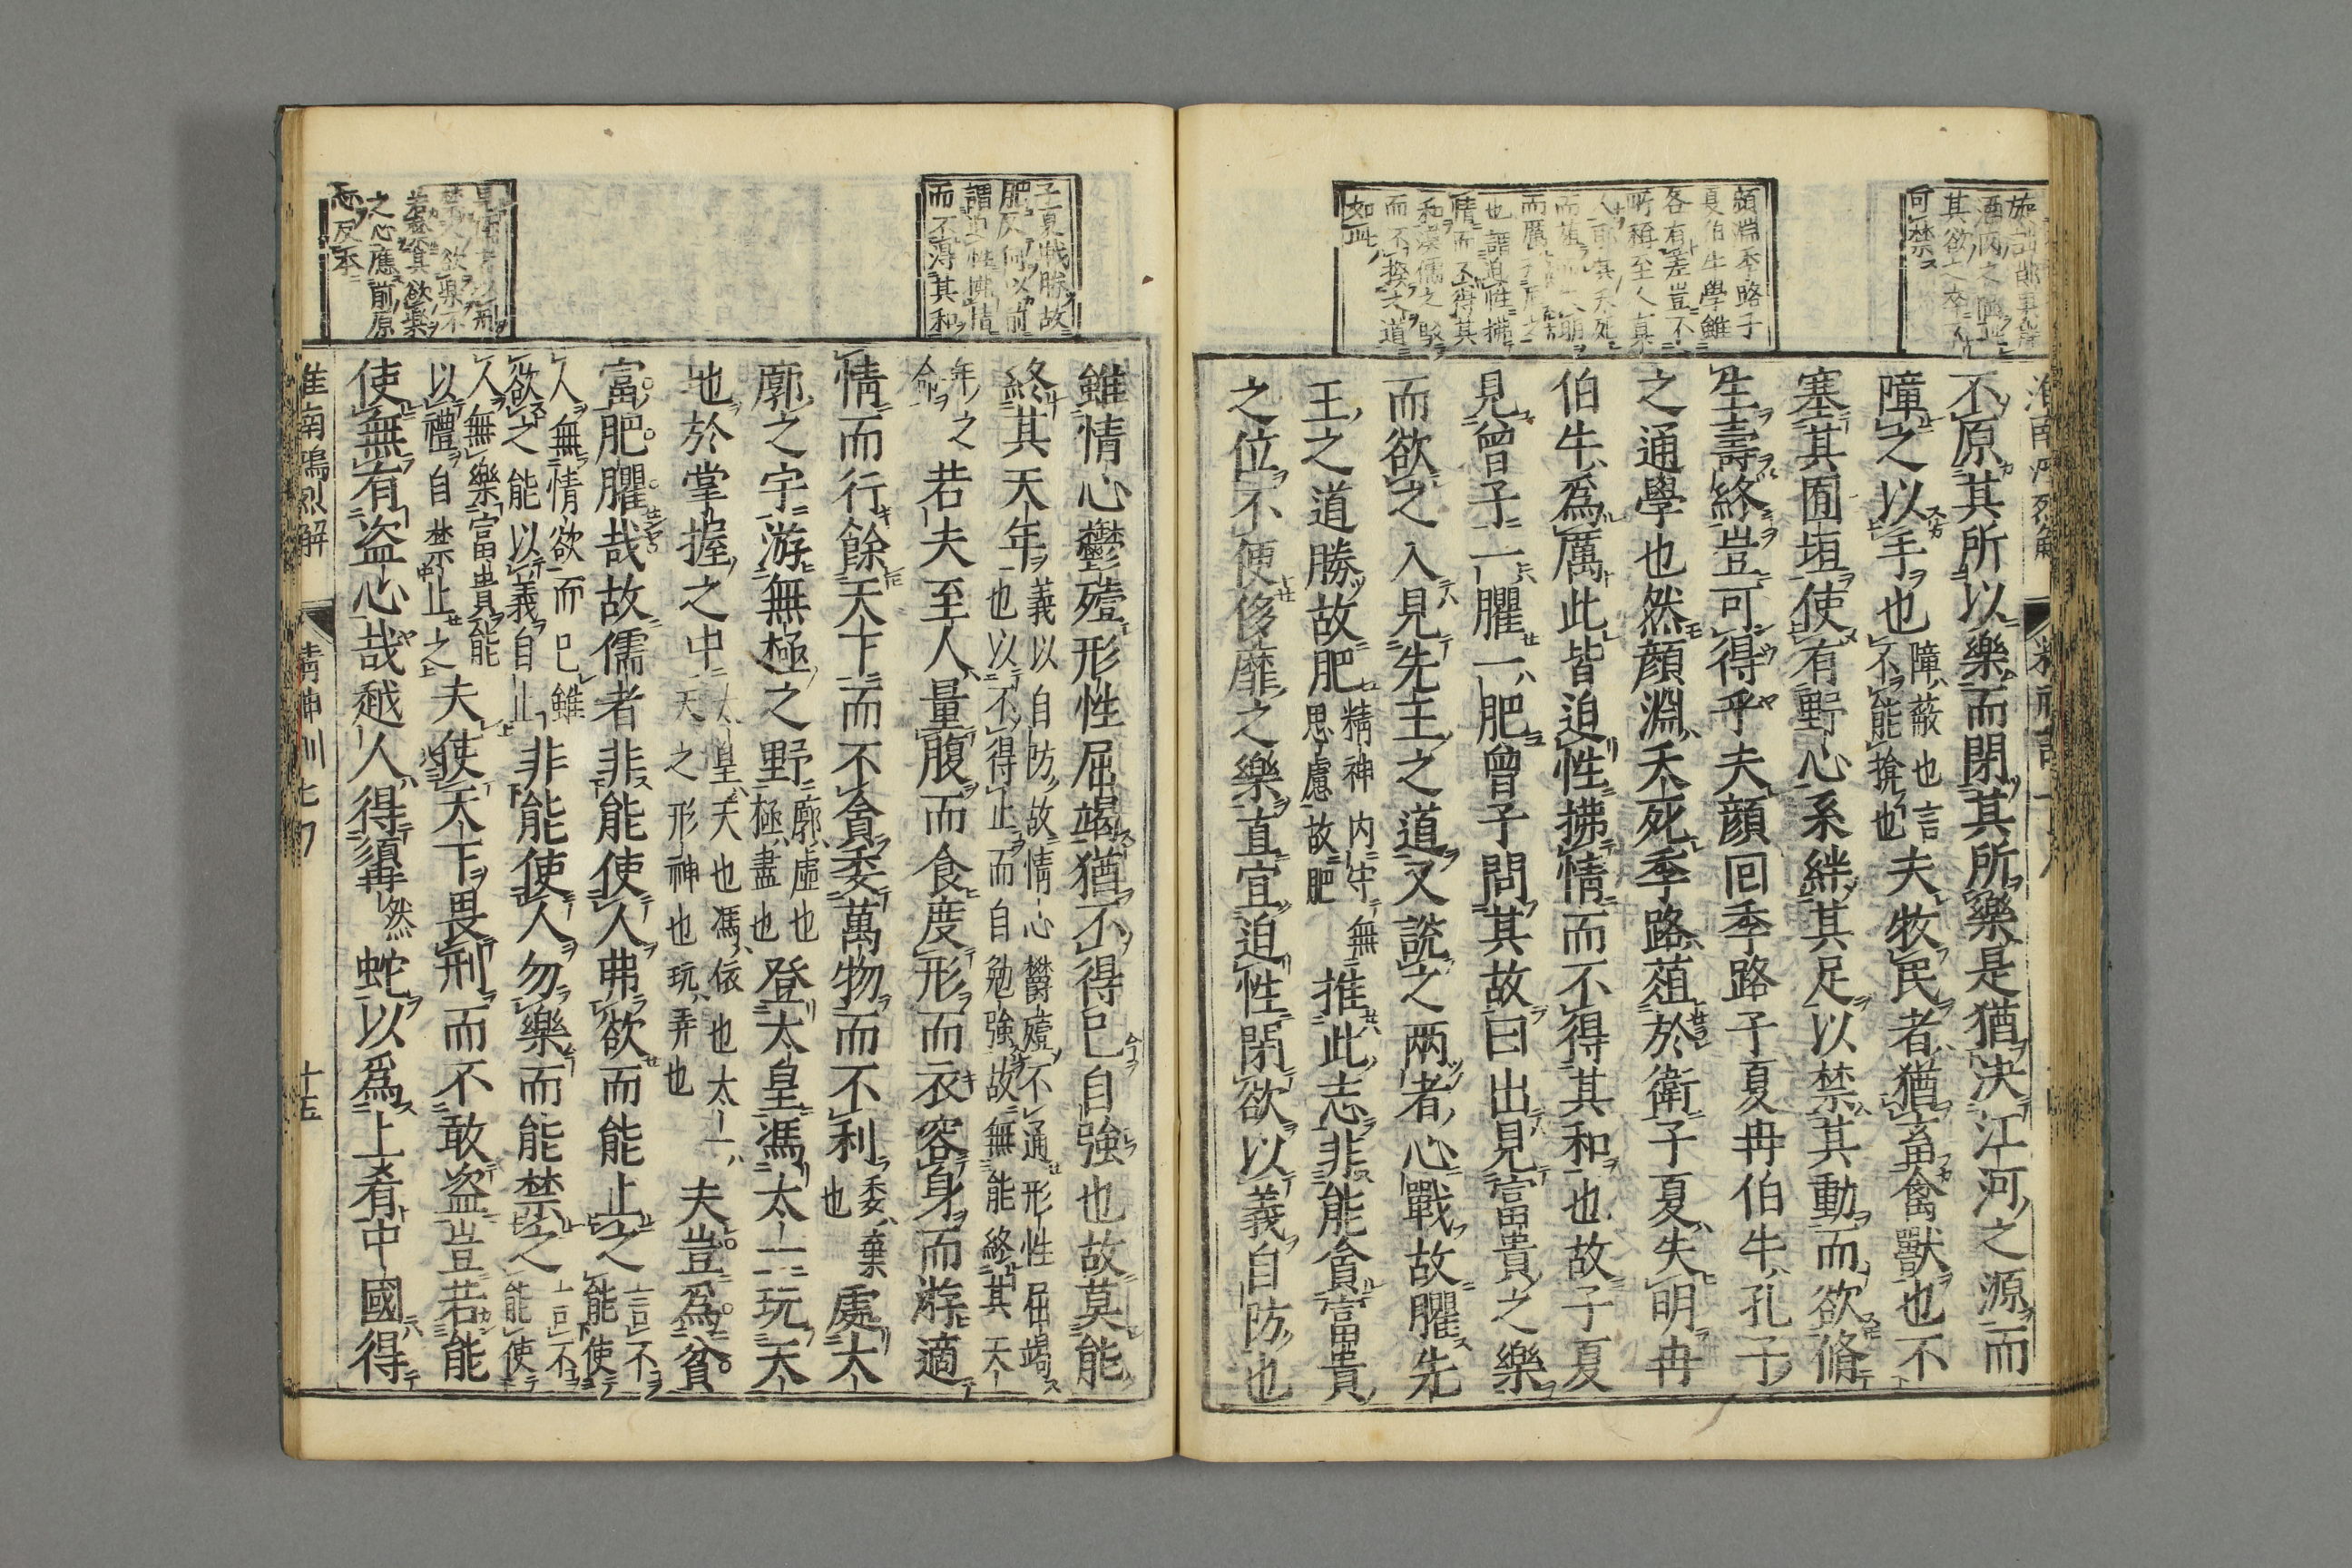 不原其所以樂而閉其所樂是猶決江河之源而
障之以手也障蔽也言不能擁也夫牧民者猶畜禽獸也不
塞其囿垣使有野心系絆其足以禁其動而欲脩
生壽終豈可得乎夫顔回季路子夏冉伯牛孔子
之通學也然顔淵夭死季路葅於衛子夏失明冉
伯牛爲厲此皆迫性拂情而不得其和也故子夏
見曾子一臞一肥曾子問其故曰出見富貴之樂
而欲之入見先王之道又說之兩者心戰故臞先
王之道勝故肥精神内守無思慮故肥推此志非能貪富貴
之位不便侈靡之樂直宜迫性閉欲以義自防也
顔淵季路子
夏伯牛學雖
各有差豈不
所稱至人眞
而不揆大道
如此
可禁
雖情心鬱殪形性屈竭猶不得已自強也故莫能
終其天年義以自防故情心鬱殪不通形性屈竭也以不得止而自勉強故無能終其天
年之命若夫至人量腹而食度形而衣容身而游適
情而行餘天下而不貪委萬物而不利委棄也處大
廓之宇游無極之野廓虛也極盡也登太皇馮太一玩天
地於掌握之中太皇天也馮依也太一天之形神也玩弄也夫豈爲貧
富肥臞哉故儒者非能使人弗欲而能止之言不能使
人無情欲而已雖欲之能以義自止非能使人勿樂而能禁之言不能使
人無樂富貴能以禮自禁止之夫使天下畏刑而不敢盗豈若能
使無有盗心哉越人得髯然蛇以爲上肴中國得
子夏戰勝故
肥反何以前
謂迫性拂情
而不得其和
之心應前原
心反本
淮南鴻烈解 精神訓七 十五